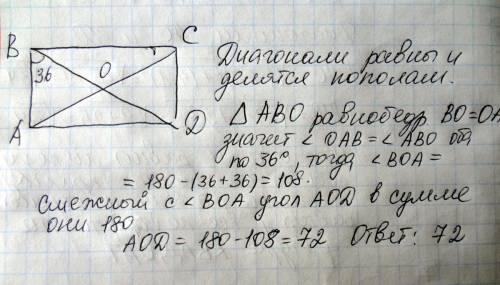 B
C
36
O
A
D
Диагонали равны и
делятся пополам.
△ ABO равнобедр BO=OA
значит ∠ OAB = ∠ ABO
по 36°, тогда ∠ BOA =
= 180 - (36+36) = 108.
смежный с ∠ BOA угол AOD в сумме
они 180
AOD = 180 - 108 = 72 Ответ: 72